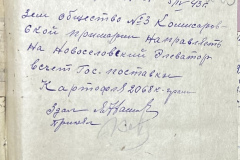 43 г.
Зем общество №3 Комисаров
ской примарии направлять
На Новоселовский Элеватор
всчет Гос. поставки
Картофля 2068 к-грам
Здал
Принял